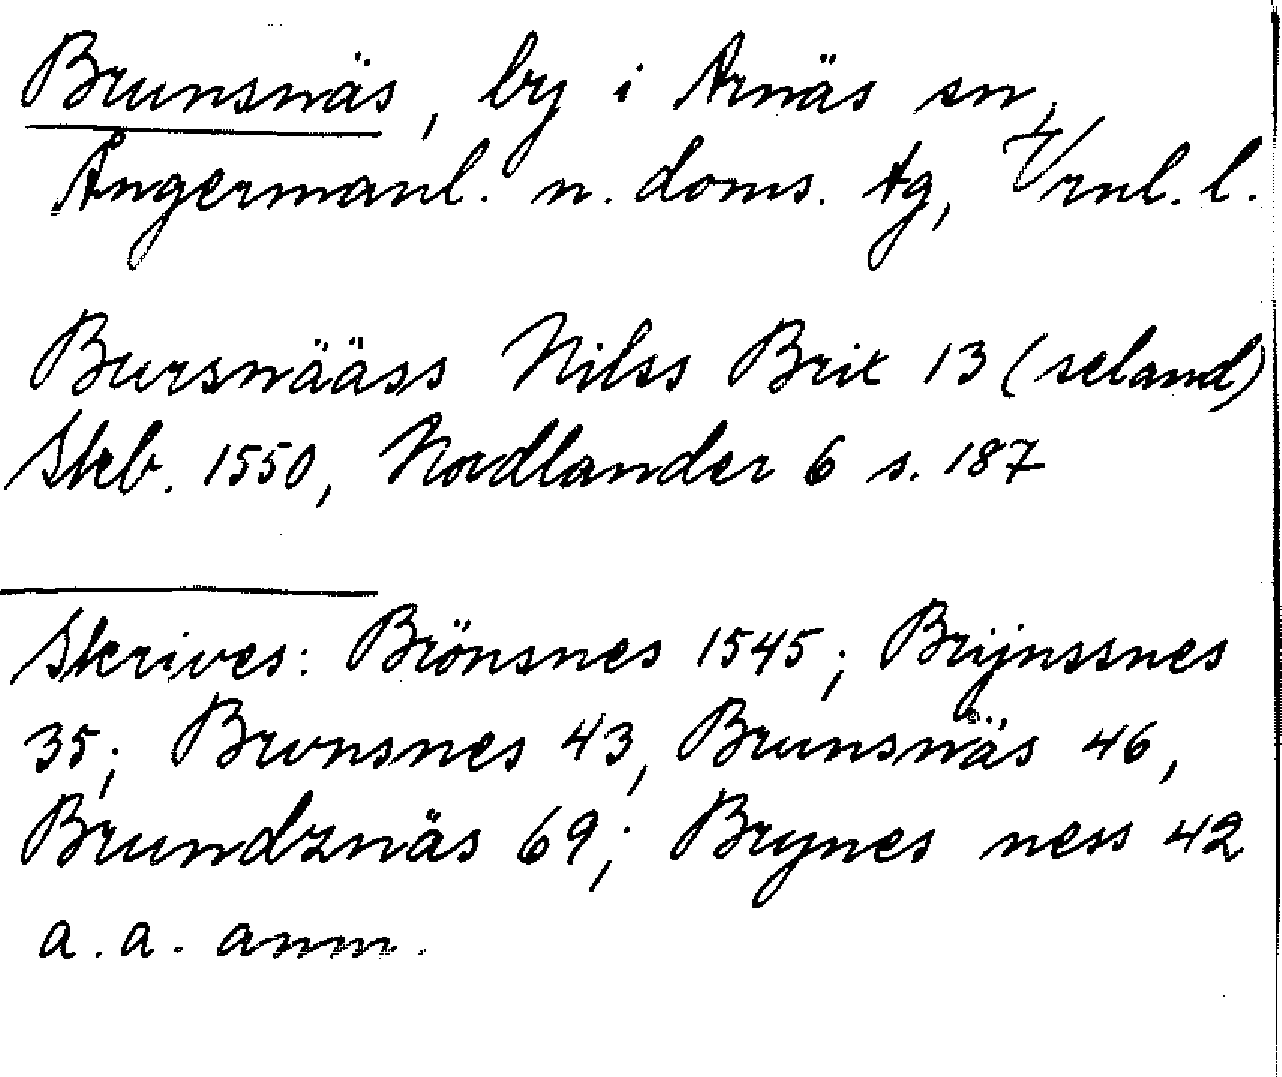 Brunsnäs, by i Arnäs sn,
Ångermanl. n. doms. tg, V/rnl. l.
Bursnääss Nilss Brit 13 (seland)
Skb. 1550, Nordlander 6 s. 187
Skrives: Brönsnes 1545; Brijnssnes
35; Brvnsnes 43, Brunsnäs 46,
Brundznäs 69; Brynes ness 42
a. a. anm.